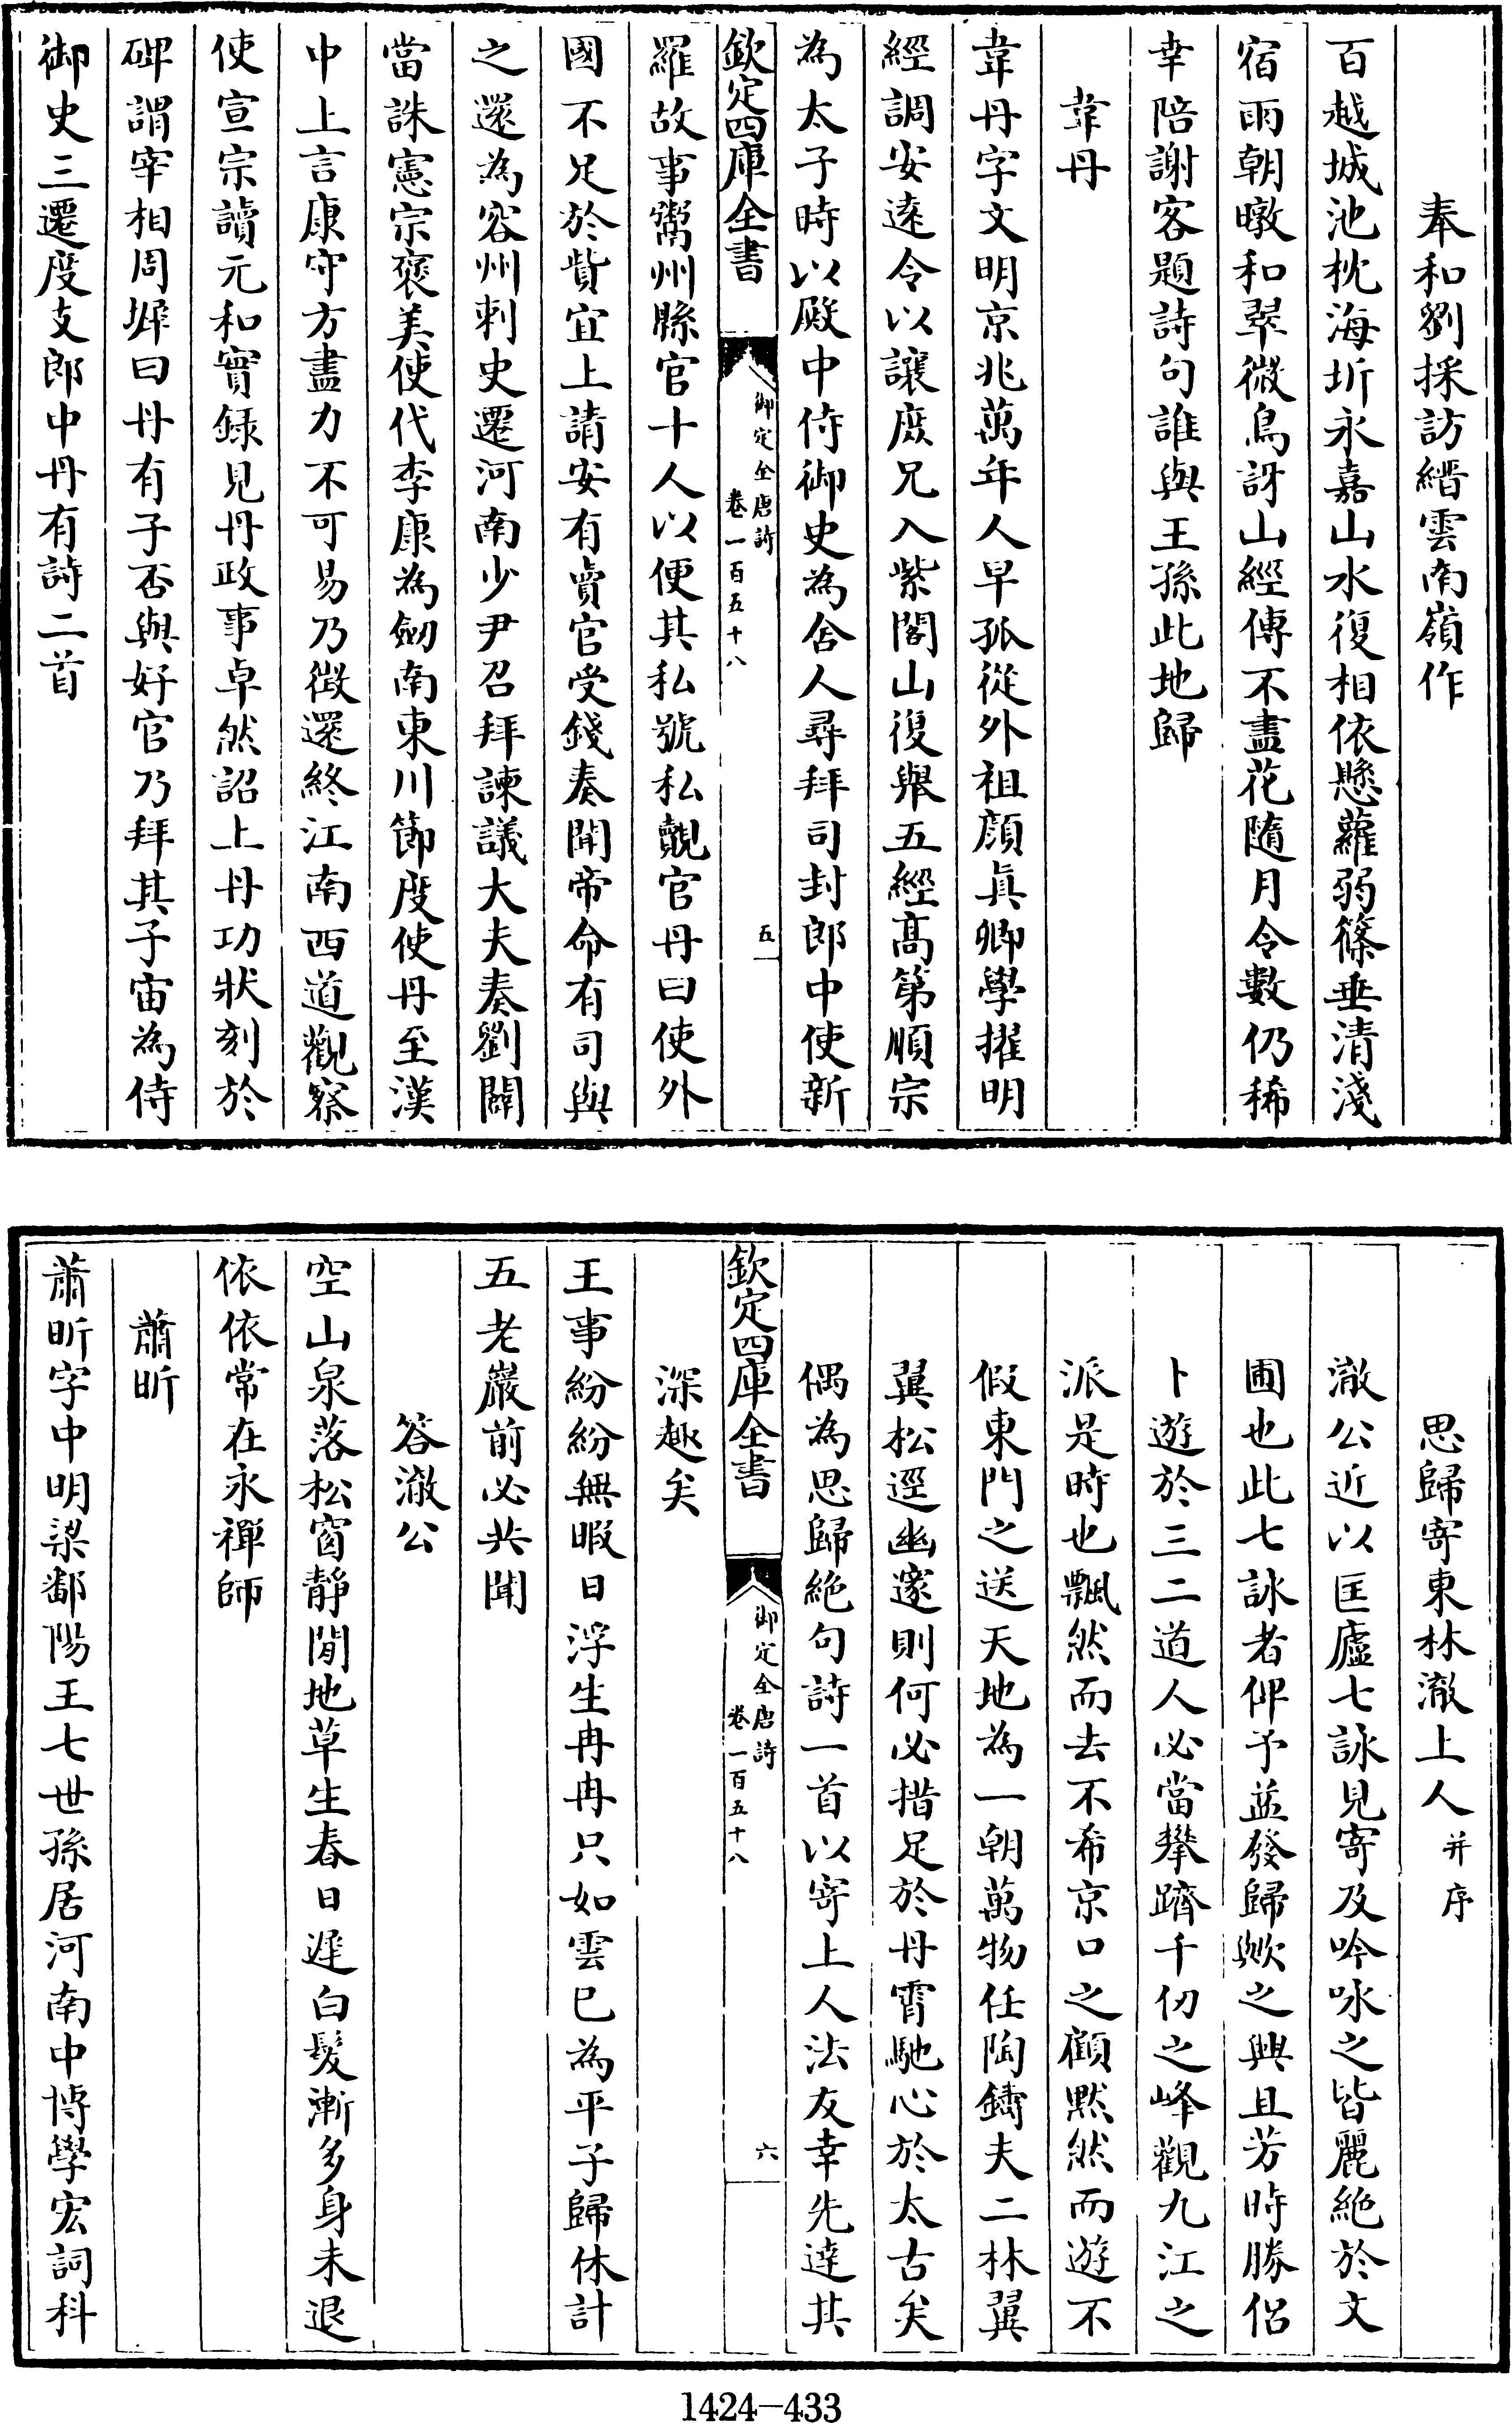 奉和劉採訪縉雲南嶺作
百越城池枕海圻永嘉山水復相依懸蘿弱篠垂清淺
宿雨朝暾和翠微鳥訝山經傳不盡花隨月令數仍稀
幸陪謝客題詩句誰與王孫此地歸
韋丹
韋丹字文明京兆萬年人早孤從外祖顔眞卿學擢明
經調安逺令以讓庶兄入紫閣山復舉五經高第順宗
為太子時以殿中侍御史為舍人尋拜司封郎中使新
欽定四庫全書
御定全唐詩
卷一百五十八
五
羅故事鬻州縣官十人以便其私號私覿官丹曰使外
國不足於貲宜上請安有賣官受錢奏聞帝命有司與
之還為容州刺史遷河南少尹召拜諫議大夫奏劉闢
當誅憲宗褒美使代李康為劒南東川節度使丹至漢
中上言康守方盡力不可易乃徴還終江南西道觀察
使宣宗讀元和實録見丹政事卓然詔上丹功狀刻於
碑謂宰相周墀曰丹有子否與好官乃拜其子宙為侍
御史三遷度支郎中丹有詩二首
思歸寄東林澈上人并序
澈公近以匡廬七詠見寄及吟咏之皆麗絶於文
圃也此七詠者俾予益發歸歟之興且芳時勝侣
卜遊於三二道人必當攀躋千仞之峰觀九江之
派是時也飄然而去不希京口之顧黙然而遊不
假東門之送天地為一朝萬物任陶鑄夫二林翼
翼松逕幽邃則何必措足於丹霄馳心於太古矣
偶為思歸絶句詩一首以寄上人法友幸先逹其
欽定四庫全書
御定全唐詩
卷一百五十八
六
深趣矣
王事紛紛無暇日浮生冉冉只如雲已為平子歸休計
五老巖前必共聞
答澈公
空山泉落松窗静閒地草生春日遲白髮漸多身未退
依依常在永禪師
蕭昕
蕭昕字中明梁鄱陽王七世孫居河南中博學宏詞科
1424—433